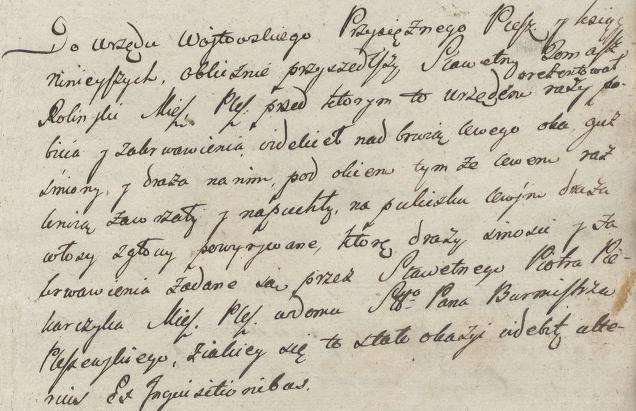 Do Urzędu Wóytowskiego Przysięznego Plesz. y xsiąg
ninieyszych, oblicznie przyszedłszy Sławetny Tomasz
Roliński Miesz. Ples. przed ktorym to urzędem
prezentował razy po-
bicia y zakrwawienia, videlicet nad brwią lewego oka guz
siniony, y draza na nim, pod okiem tym ze lewem raz
krwią zawrzały y napuchły, na policzku lewym draza
włosy z głowy powyrywane, ktorę drazy sinosci y za
krwawienia zadane są przez Sławetnego Piotra Pie-
karczyka Miesz. Ples. w domu Pana Burmistrza
Pleszewskiego, z iakiey się to stało okazyi videbit ulte-
rius Ex Inquisitionibus.